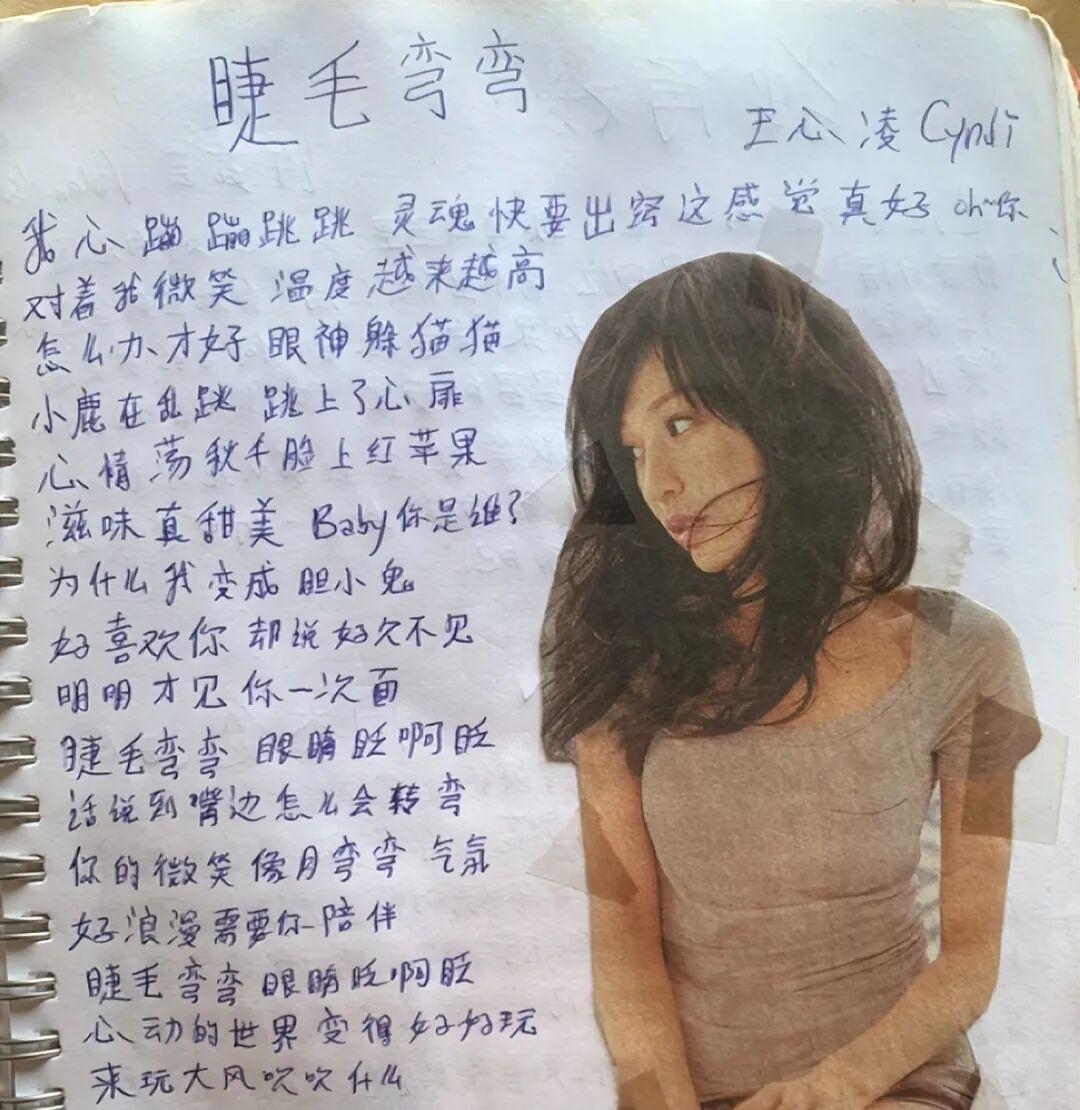 睫毛弯弯
王心凌 Cyndi
我心蹦蹦跳跳 灵魂快要出窍这感觉真好 oh~你
对着我微笑 温度越来越高
怎么办才好 眼神躲猫猫
小鹿在乱跳 跳上了心扉
心情荡秋千脸上红苹果
滋味真甜美 Baby你是谁?
为什么我变成胆小鬼
好喜欢你 却说好久不见
明明才见你一次面
睫毛弯弯 眼睛眨啊眨
话说到嘴边怎么会转弯
你的微笑像月弯弯 气氛
好浪漫需要你陪伴
睫毛弯弯 眼睛眨啊眨
心动的世界变得好好玩
来玩大风吹吹什么